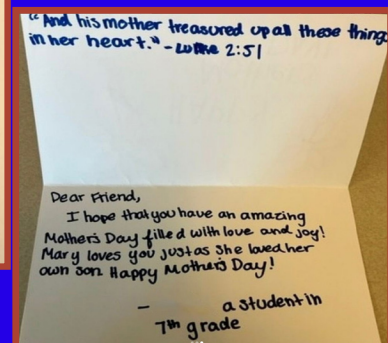 “And his mother treasured up all these thing
in her heart." - Luke 2:51
Dear Friend,
I hope that you have an amazing
Mother's Day filled with love and joy!
Mary loves you just as she loved her
own son Happy Mother's Day!
- a student in
7th grade